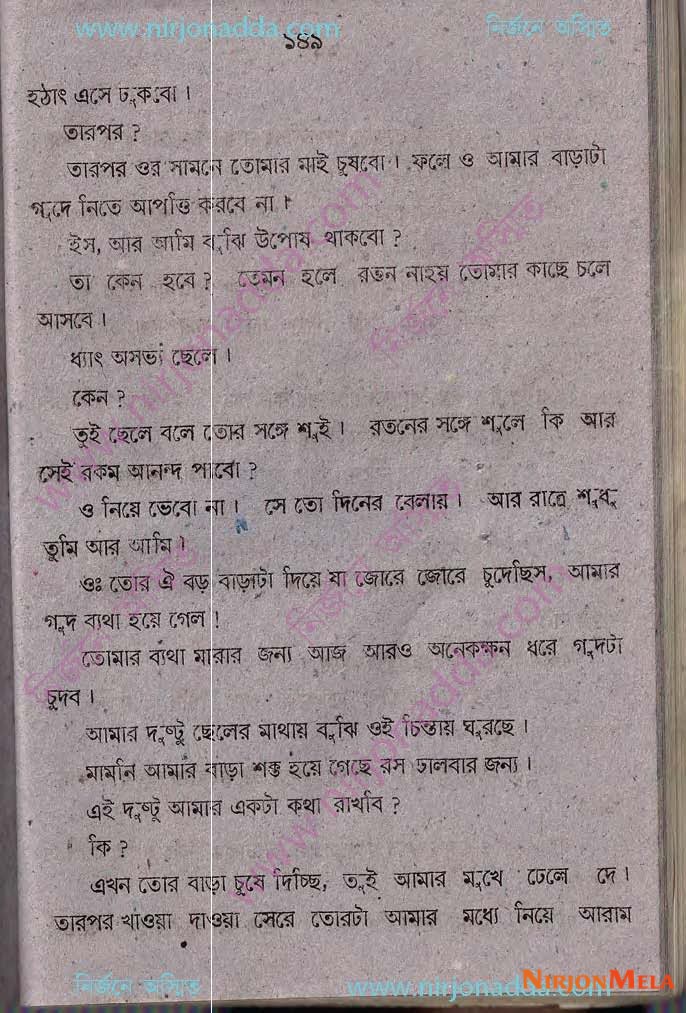 www.nirjonadda.com নির্জনে অস্মিত
১৪৯
হঠাৎ এসে ঢুকবো।
তারপর ?
তারপর ওর সামনে তোমার মাই চুষবো। ফলে ও আমার বাড়াটা
গুদে নিতে আপত্তি করবে না।
ইস, আর আমি বুঝি উপোষ থাকবো ?
তা কেন হবে ? তেমন হলে রতন নাহয় তোমার কাছে চলে
আসবে।
ধ্যাৎ অসভ্য ছেলে।
কেন ?
তুই ছেলে বলে তোর সঙ্গে শুই। রতনের সঙ্গে শুলে কি আর
সেই রকম আনন্দ পাবো ?
ও নিয়ে ভেবো না। সে তো দিনের বেলায়। আর রাত্রে শুধু
তুমি আর আমি।
ওঃ তোর ঐ বড় বাড়াটা দিয়ে যা জোরে জোরে চুদেছিস, আমার
গুদ ব্যথা হয়ে গেল !
তোমার ব্যথা মারার জন্য আজ আরও অনেকক্ষন ধরে গুদটা
চুদব।
আমার দুষ্টু ছেলের মাথায় বুঝি ওই চিন্তায় ঘুরছে।
মামনি আমার বাড়া শক্ত হয়ে গেছে রস ঢালবার জন্য।
এই দুষ্টু আমার একটা কথা রাখবি ?
কি ?
এখন তোর বাড়া চুষে দিচ্ছি, তুই আমার মুখে ঢেলে দে।
তারপর খাওয়া দাওয়া সেরে তোরটা আমার মধ্যে নিয়ে আরাম
নির্জনে অস্মিত www.nirjonadda.com NIRJONMELA